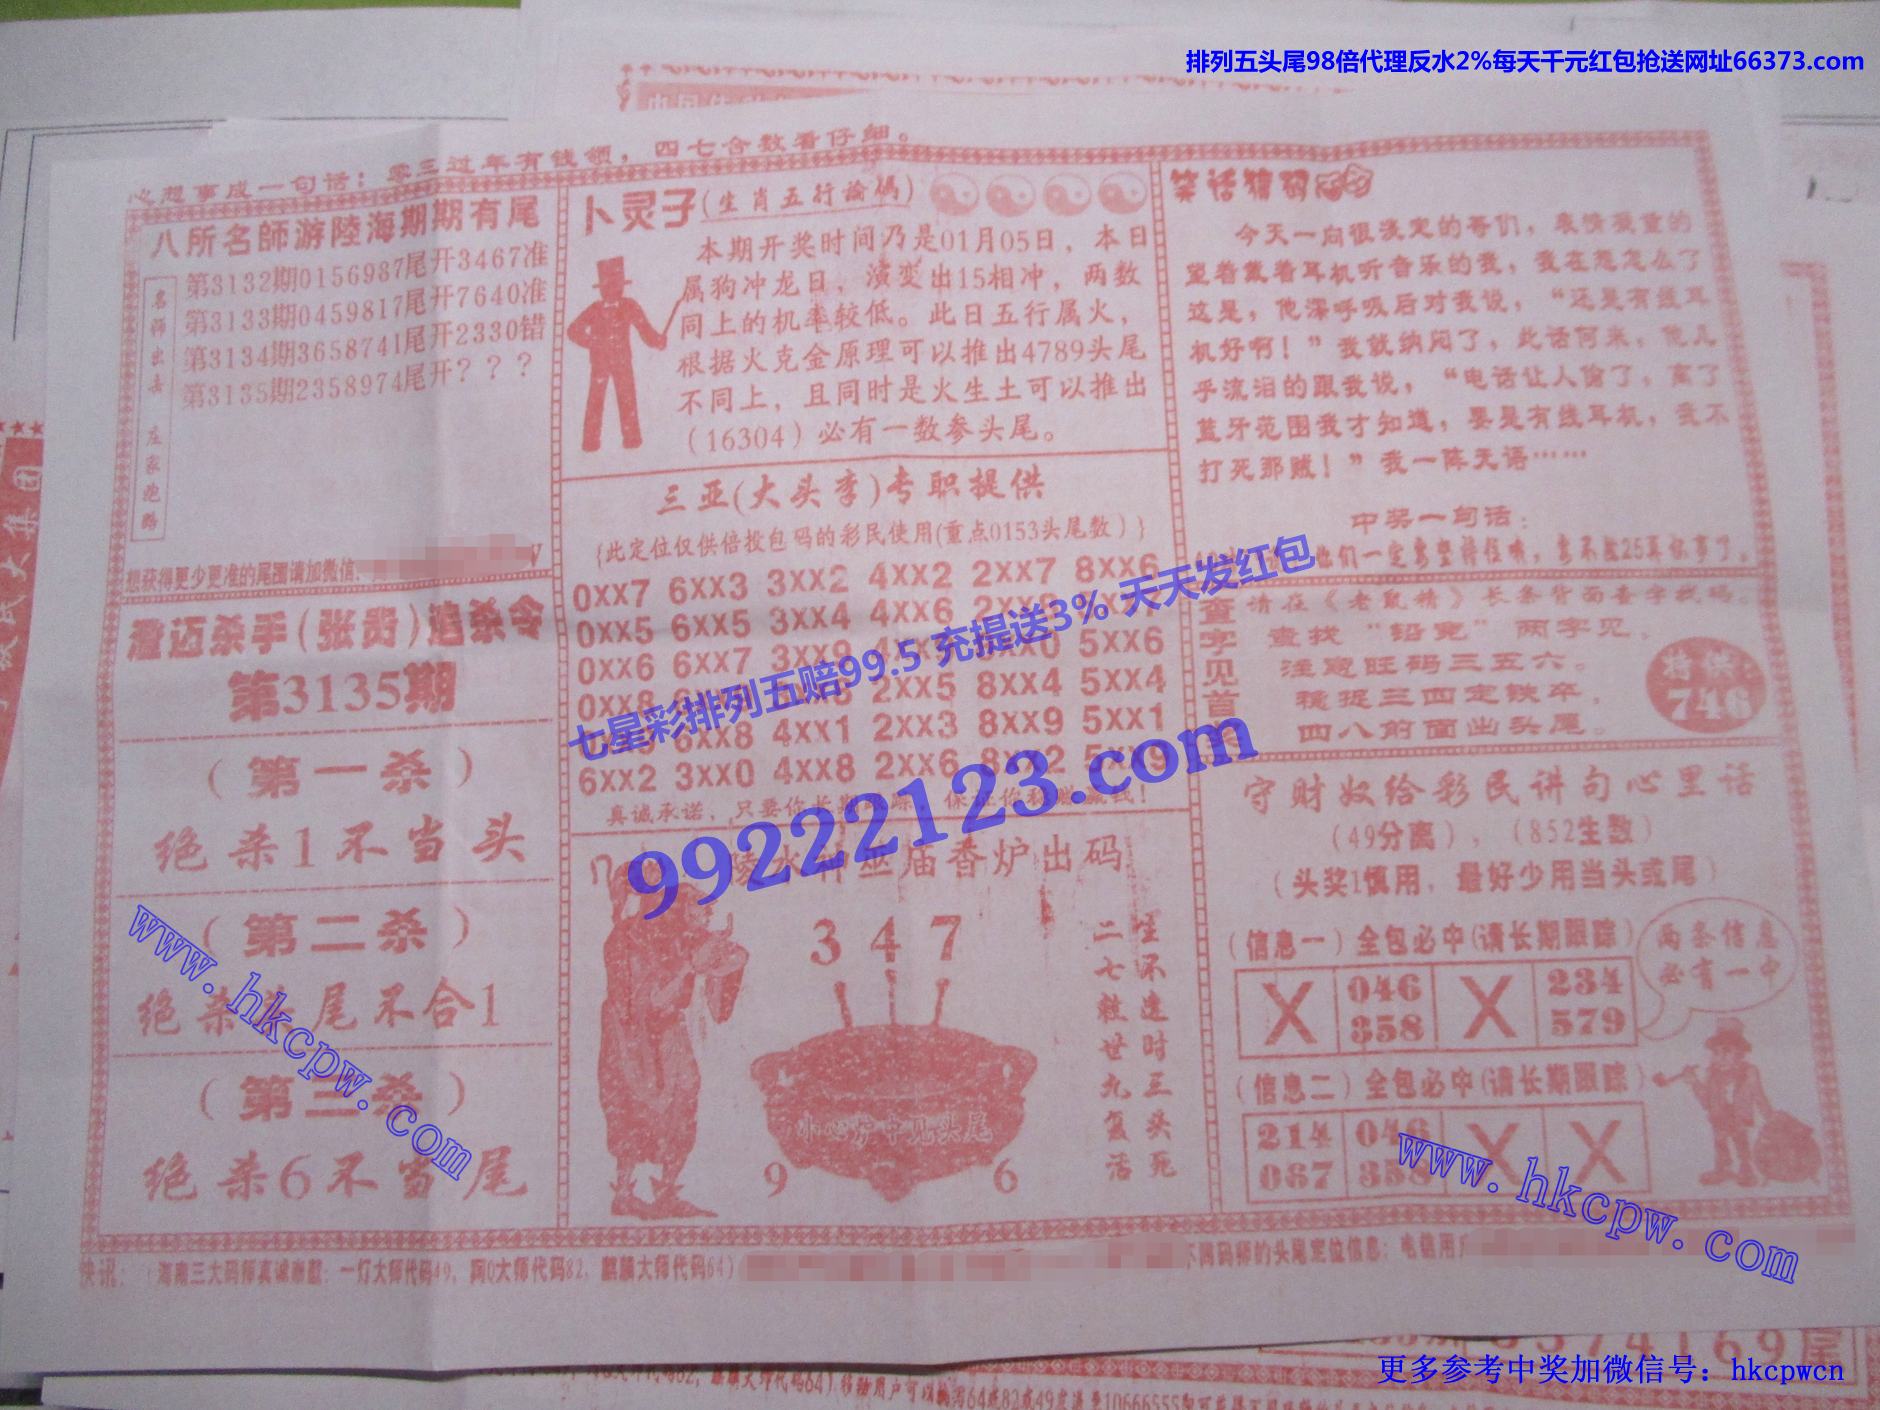 排列五头尾98倍代理反水2%每天千元红包抢送网址66373.com
心想事成一句话：零三过年有钱领，四七合数看仔细。
八所名師游陸海期期有尾
第3132期0156987尾开3467准
第3133期0459817尾开7640准
第3134期3658741尾开2330错
第3135期2358974尾开？？？
名师出击 庄家跑路
想获得更少更准的尾图请加微信
澄迈杀手(张贵)追杀令
第3135期
（第一杀）
绝杀1不当头
（第二杀）
绝杀头尾不合1
（第三杀）
绝杀6不当尾
卜灵子(生肖五行論碼)
本期开奖时间乃是01月05日，本日
属狗冲龙日，演变出15相冲，两数
同上的机率较低。此日五行属火，
根据火克金原理可以推出4789头尾
不同上，且同时是火生土可以推出
（16304）必有一数参头尾。
三亚(大头李)专职提供
{此定位仅供倍投包码的彩民使用(重点0153头尾数）}
0XX7 6XX3 3XX2 4XX2 2XX7 8XX6
0XX5 6XX5 3XX4 4XX6
0XX6 6XX7 5XX6
2XX5 8XX4 5XX4
6XX8 4XX1 2XX3 8XX9 5XX1
6XX2 3XX0 4XX8 2XX6 8XX2 5XX9
真诚承诺，只要你长期
七星彩排列五赔99.5 充提送3% 天天发红包
99222123.com
陵水神巫庙香炉出码
347
小心炉中见头尾
9 6
生不逢时三头死
二七粒廿九复活
笑话猜码
今天一向很淡定的哥们，表情凝重的
望着戴着耳机听音乐的我，我在想怎么了
这是，他深呼吸后对我说，“还是有线耳
机好啊！”我就纳闷了，此话何来，他几
乎流泪的跟我说，“电话让人偷了，离了
蓝牙范围我才知道，要是有线耳机，我不
打死那贼！”我一陈无语……
中奖一句话：
查字见首尾
请在《老鼠精》长条背面查字找码。
查找“铅宽”两字见，
注意旺码三五六。
稳捉三四定铁卒，
四八前面出头尾。
特供
746
守财奴给彩民讲句心里话
（49分离），（852生数）
（头奖1慎用，最好少用当头或尾）
（信息一）全包必中(请长期跟踪)
X 046 X 234
358 579
两条信息
必有一中
（信息二）全包必中(请长期跟踪)
214 046 X X
067 358
www.hkcpw.com
www.hkcpw.com
快讯：（海南三大码师真诚奉献：一灯大师代码49，阿Q大师代码82，麒麟大师代码64）
不同码师的头尾定位信息：电信用户
更多参考中奖加微信号：hkcpwcn